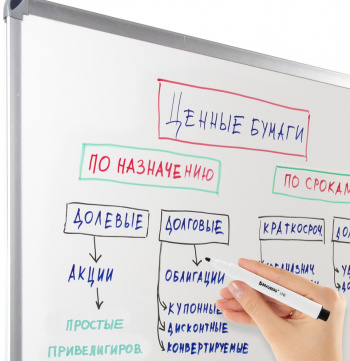 ЦЕННЫЕ БУМАГИ
ПО НАЗНАЧЕНИЮ
ПО СРОКАМ
ДОЛЕВЫЕ
ДОЛГОВЫЕ
КРАТКОСРОЧ
АКЦИИ
ОБЛИГАЦИИ
КУПОННЫЕ
ДИСКОНТНЫЕ
КОНВЕРТИРУЕМЫЕ
ПРОСТЫЕ
ПРИВЕЛИГИРОВ.
BRAUBERG